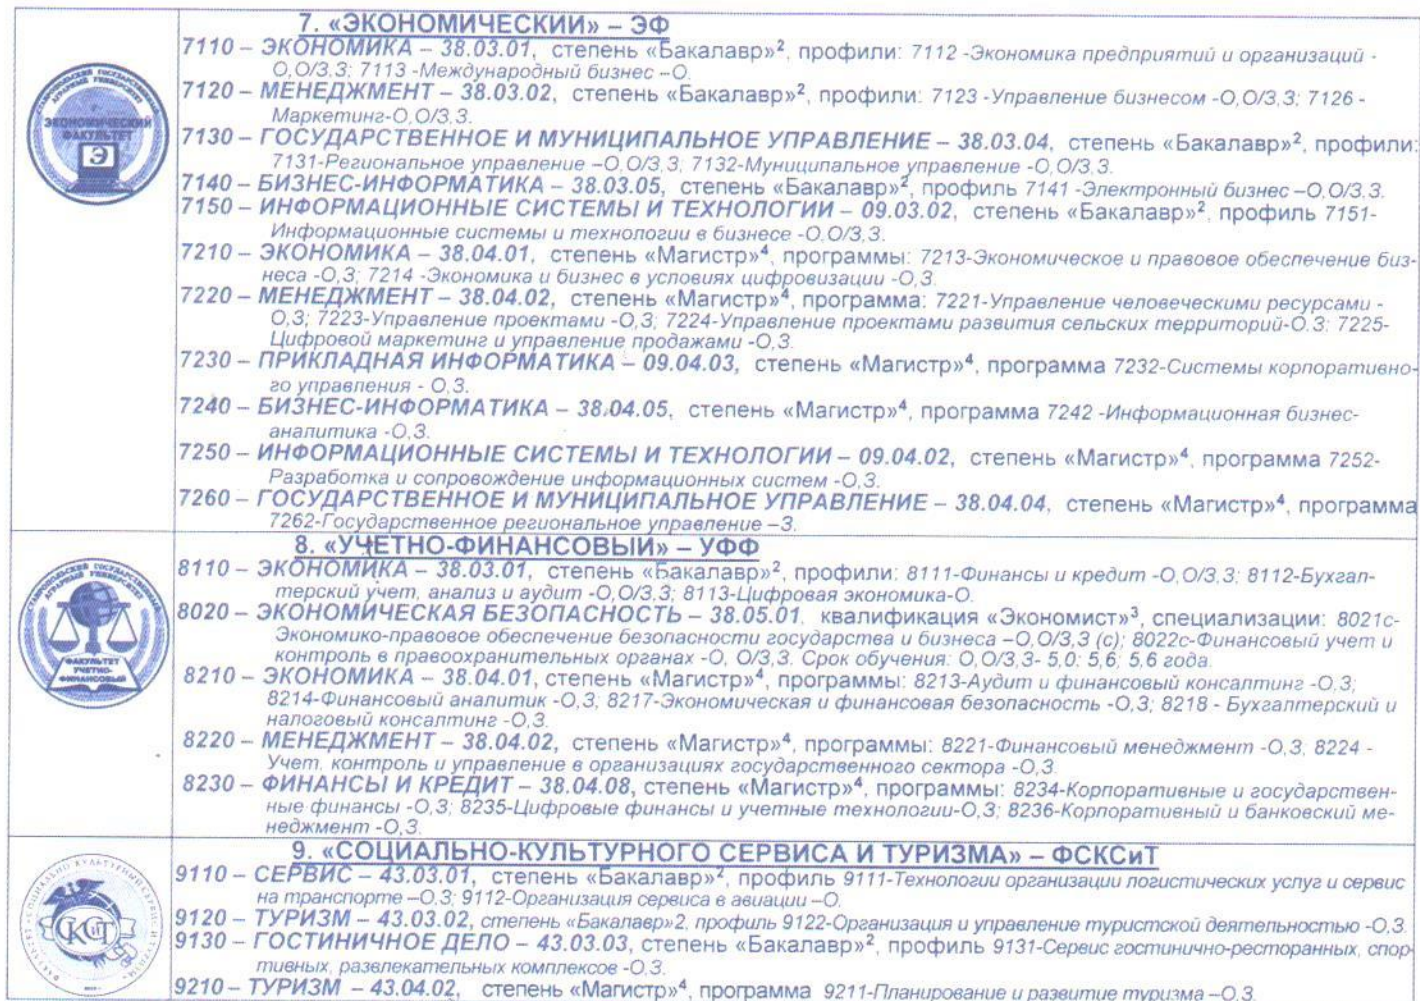 7. «ЭКОНОМИЧЕСКИЙ» – ЭФ
7110 – ЭКОНОМИКА – 38.03.01, степень «Бакалавр»², профили: 7112 -Экономика предприятий и организаций -
О,О/З,З; 7113 -Международный бизнес –О.
7120 – МЕНЕДЖМЕНТ – 38.03.02, степень «Бакалавр»², профили: 7123 -Управление бизнесом -О,О/З,З; 7126 -
Маркетинг-О,О/З,З.
7130 – ГОСУДАРСТВЕННОЕ И МУНИЦИПАЛЬНОЕ УПРАВЛЕНИЕ – 38.03.04, степень «Бакалавр»², профили:
7131-Региональное управление –О,О/З,З; 7132-Муниципальное управление -О,О/З,З.
7140 – БИЗНЕС-ИНФОРМАТИКА – 38.03.05, степень «Бакалавр»², профиль 7141 -Электронный бизнес –О,О/З,З.
7150 – ИНФОРМАЦИОННЫЕ СИСТЕМЫ И ТЕХНОЛОГИИ – 09.03.02, степень «Бакалавр»², профиль 7151-
Информационные системы и технологии в бизнесе -О,О/З,З.
7210 – ЭКОНОМИКА – 38.04.01, степень «Магистр»⁴, программы: 7213-Экономическое и правовое обеспечение биз-
неса -О,З; 7214 -Экономика и бизнес в условиях цифровизации -О,З.
7220 – МЕНЕДЖМЕНТ – 38.04.02, степень «Магистр»⁴, программа: 7221-Управление человеческими ресурсами -
О,З; 7223-Управление проектами -О,З; 7224-Управление проектами развития сельских территорий-О.З; 7225-
Цифровой маркетинг и управление продажами -О,З.
7230 – ПРИКЛАДНАЯ ИНФОРМАТИКА – 09.04.03, степень «Магистр»⁴, программа 7232-Системы корпоративно-
го управления - О,З.
7240 – БИЗНЕС-ИНФОРМАТИКА – 38.04.05, степень «Магистр»⁴, программа 7242 -Информационная бизнес-
аналитика -О,З.
7250 – ИНФОРМАЦИОННЫЕ СИСТЕМЫ И ТЕХНОЛОГИИ – 09.04.02, степень «Магистр»⁴, программа 7252-
Разработка и сопровождение информационных систем -О,З.
7260 – ГОСУДАРСТВЕННОЕ И МУНИЦИПАЛЬНОЕ УПРАВЛЕНИЕ – 38.04.04, степень «Магистр»⁴, программа
7262-Государственное региональное управление –З.
СТАВРОПОЛЬСКИЙ ГОСУДАРСТВЕННЫЙ
АГРАРНЫЙ УНИВЕРСИТЕТ
ЭКОНОМИЧЕСКИЙ
ФАКУЛЬТЕТ
Э
8. «УЧЕТНО-ФИНАНСОВЫЙ» – УФФ
8110 – ЭКОНОМИКА – 38.03.01, степень «Бакалавр»², профили: 8111-Финансы и кредит -О,О/З,З; 8112-Бухгал-
терский учет, анализ и аудит -О,О/З,З; 8113-Цифровая экономика-О.
8020 – ЭКОНОМИЧЕСКАЯ БЕЗОПАСНОСТЬ – 38.05.01, квалификация «Экономист»³, специализации: 8021с-
Экономико-правовое обеспечение безопасности государства и бизнеса –О,О/З,З (с); 8022с-Финансовый учет и
контроль в правоохранительных органах -О, О/З,З. Срок обучения: О,О/З,З- 5,0; 5,6; 5,6 года.
8210 – ЭКОНОМИКА – 38.04.01, степень «Магистр»⁴, программы: 8213-Аудит и финансовый консалтинг -О,З;
8214-Финансовый аналитик -О,З; 8217-Экономическая и финансовая безопасность -О,З; 8218 - Бухгалтерский и
налоговый консалтинг -О,З.
8220 – МЕНЕДЖМЕНТ – 38.04.02, степень «Магистр»⁴, программы: 8221-Финансовый менеджмент -О,З; 8224 -
Учет, контроль и управление в организациях государственного сектора -О,З.
8230 – ФИНАНСЫ И КРЕДИТ – 38.04.08, степень «Магистр»⁴, программы: 8234-Корпоративные и государствен-
ные финансы -О,З; 8235-Цифровые финансы и учетные технологии-О,З; 8236-Корпоративный и банковский ме-
неджмент -О,З.
СТАВРОПОЛЬСКИЙ ГОСУДАРСТВЕННЫЙ
АГРАРНЫЙ УНИВЕРСИТЕТ
ФАКУЛЬТЕТ
УЧЕТНО-
ФИНАНСОВЫЙ
9. «СОЦИАЛЬНО-КУЛЬТУРНОГО СЕРВИСА И ТУРИЗМА» – ФСКСиТ
9110 – СЕРВИС – 43.03.01, степень «Бакалавр»², профиль 9111-Технологии организации логистических услуг и сервис
на транспорте –О,З; 9112-Организация сервиса в авиации –О.
9120 – ТУРИЗМ – 43.03.02, степень «Бакалавр»2, профиль 9122-Организация и управление туристской деятельностью -О,З.
9130 – ГОСТИНИЧНОЕ ДЕЛО – 43.03.03, степень «Бакалавр»², профиль 9131-Сервис гостинично-ресторанных, спор-
тивных, развлекательных комплексов -О,З.
9210 – ТУРИЗМ – 43.04.02, степень «Магистр»⁴, программа 9211-Планирование и развитие туризма –О,З.